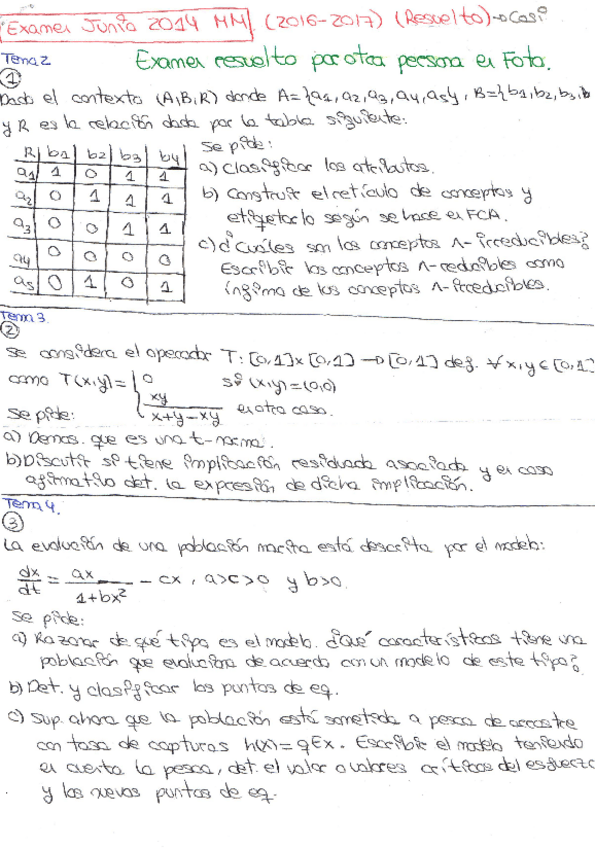 Examen Junio 2014 MM (2016-2017) (Resuelto)→Casi
Tema 2 Examen resuelto por otra persona en Foto.
1
Dado el contexto (A,B,R) donde A={a1,a2,a3,a4,a5}, B={b1,b2,b3,b
y R es la relación dada por la tabla siguiente:
Se pide:
R b1 b2 b3 b4
a1 1 0 1 1
a2 0 1 1 1
a3 0 0 1 1
a4 0 0 0 0
a5 0 1 0 1
a) Clasificar los atributos.
b) Construir el retículo de conceptos y
etiquetarlo según se hace en FCA.
c) ¿Cuáles son los conceptos ∧-irreducibles?
Escribir los conceptos ∧-reducibles como
ínfimo de los conceptos ∧-irreducibles.
Tema 3.
2
Se considera el operador T: [0,1]x[0,1]→[0,1] def. ∀x,y∈[0,1]
como T(x,y)= { 0 si (x,y)=(0,0)
xy / x+y-xy en otro caso.
Se pide:
a) Demos. que es una t-norma.
b) Discutir si tiene implicación residuada asociada y en caso
afirmativo det. la expresión de dicha implicación.
Tema 4.
3
La evolución de una población marina está descrita por el modelo:
dx/dt = ax / 1+bx² - cx, a>c>0 y b>0.
Se pide:
a) Razonar de qué tipo es el modelo. ¿Qué características tiene una
población que evoluciona de acuerdo con un modelo de este tipo?
b) Det. y clasificar los puntos de eq.
c) Sup. ahora que la población está sometida a pesca de arrastre
con tasa de capturas h(x)=qEx. Escribir el modelo teniendo
en cuenta la pesca, det. el valor o valores críticos del esfuerzo
y los nuevos puntos de eq.